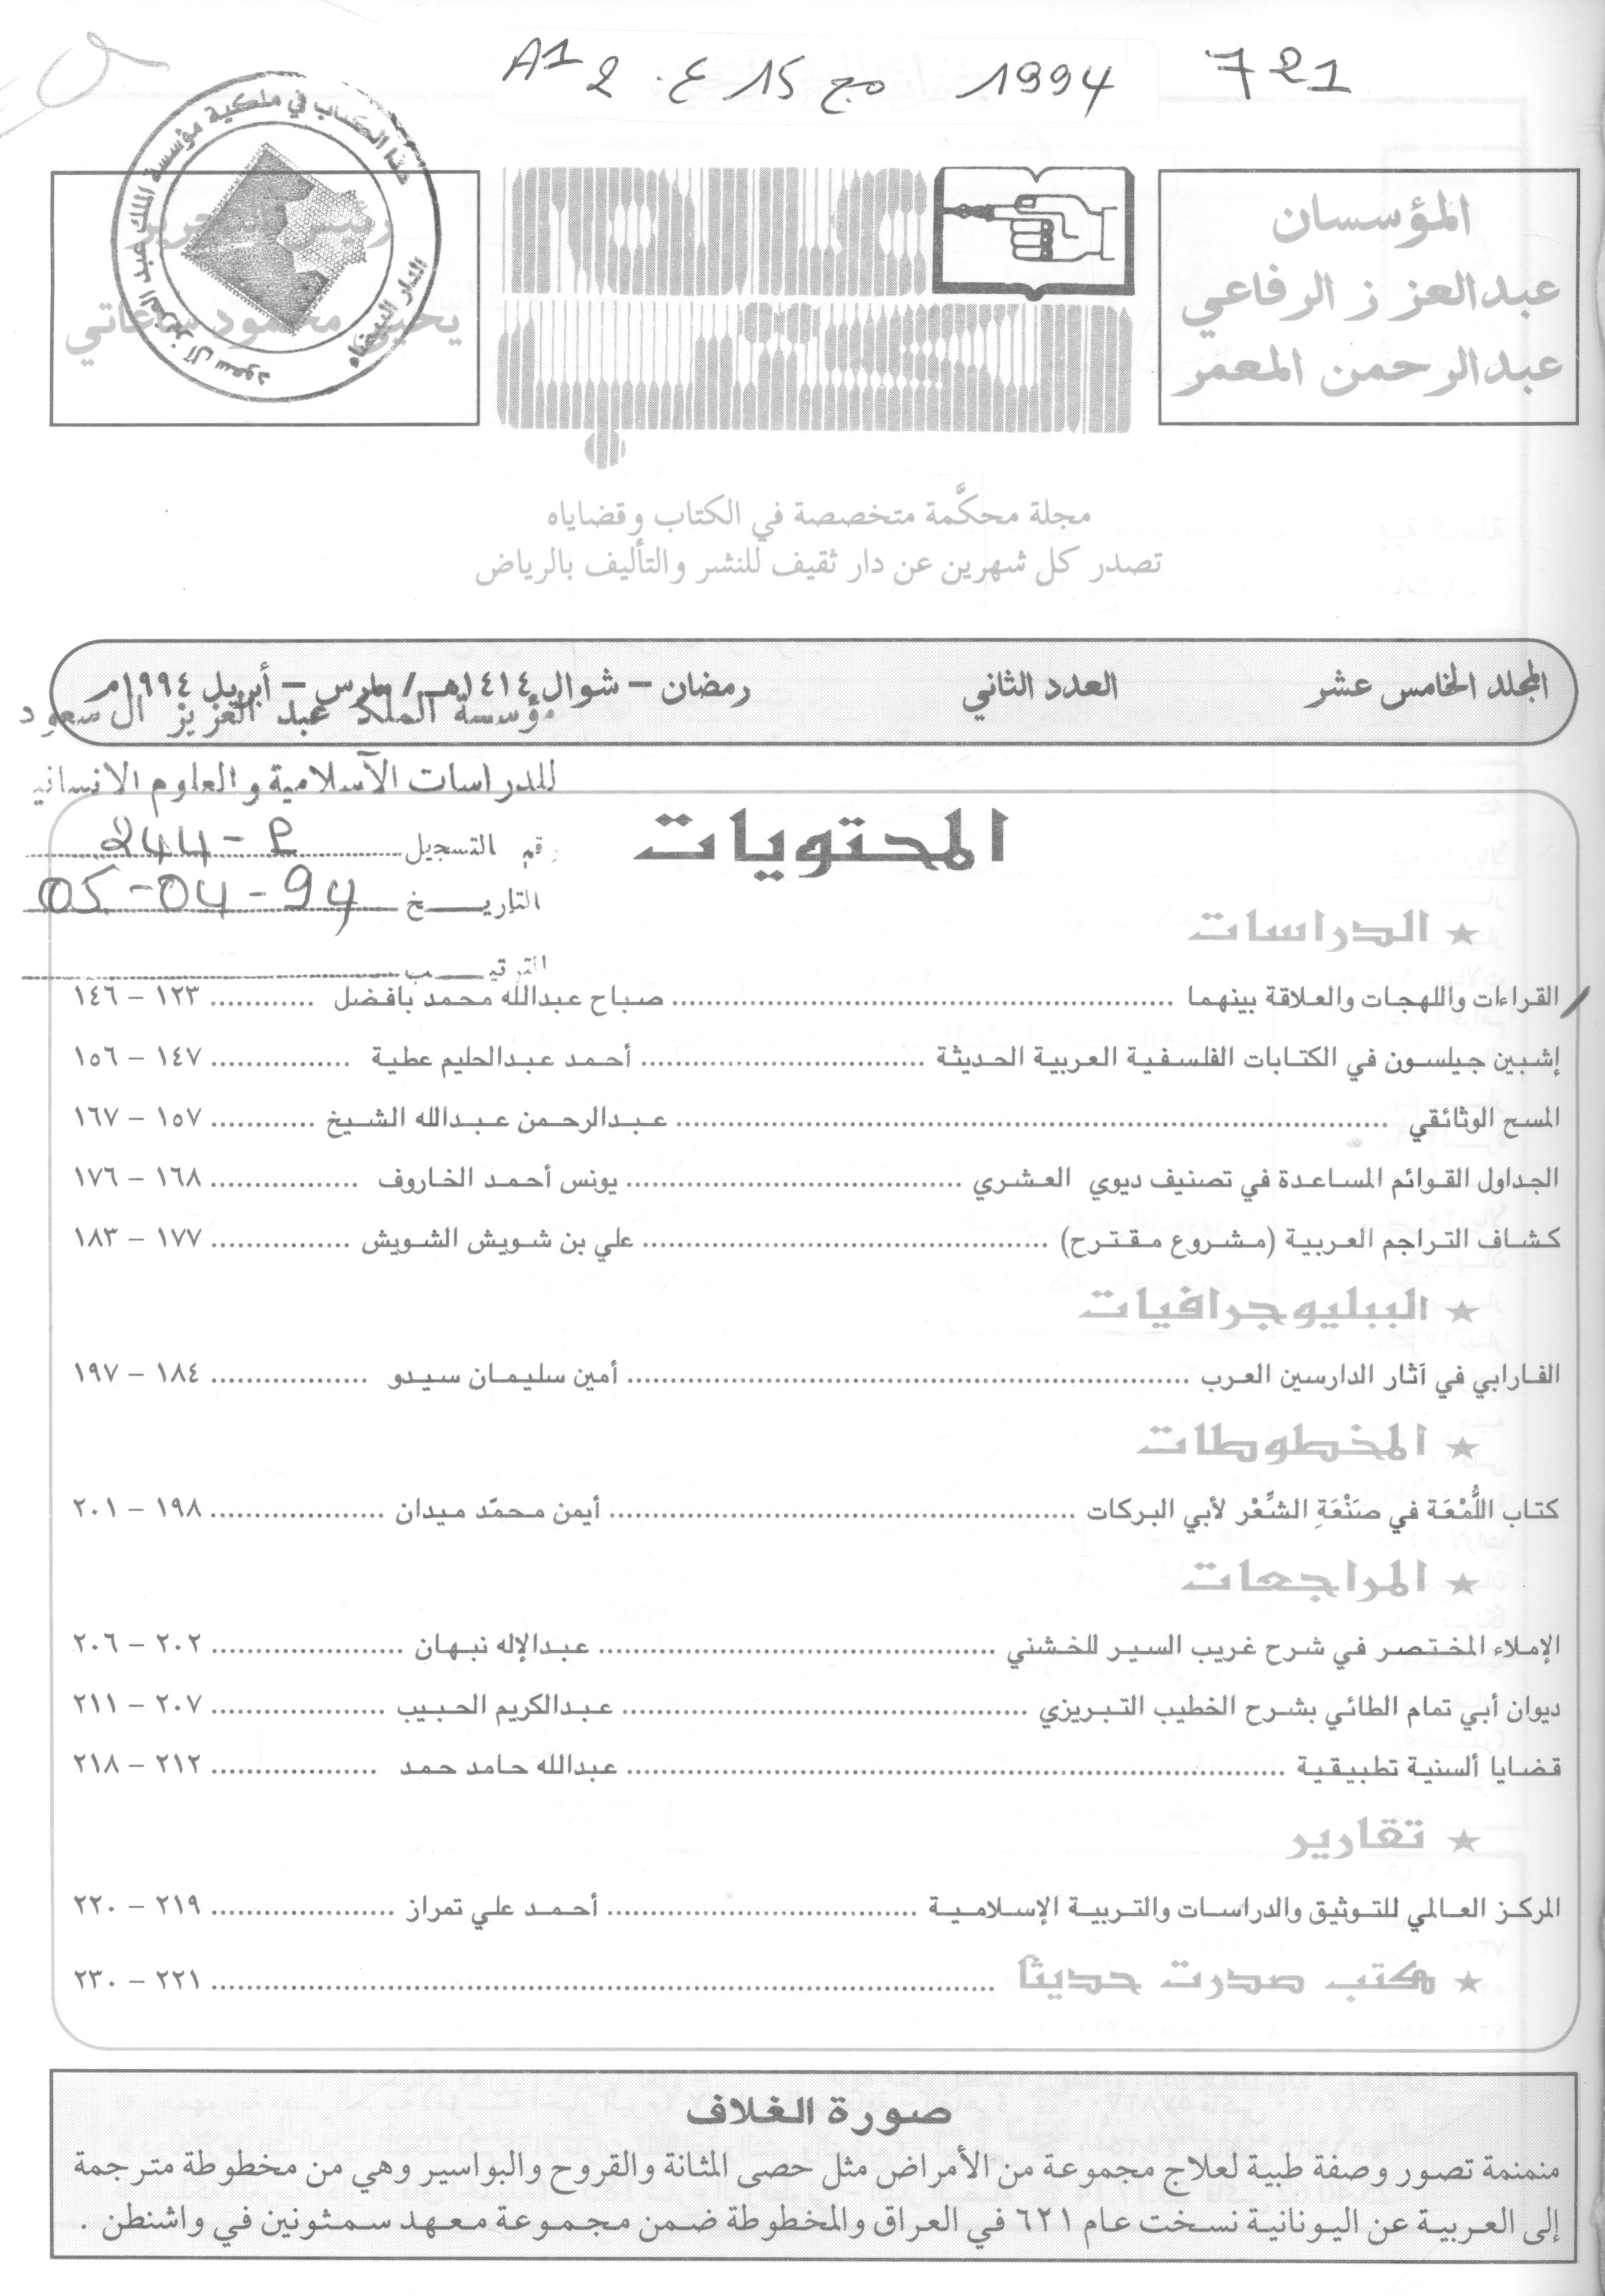 721 1994 مج 15 ع. 2 A1
المؤسسان
عبدالعزيز الرفاعي
عبدالرحمن المعمر
عالم الكتب
رئيس التحرير
يحيى محمود ساعاتي
هذا الكتاب في ملكية مؤسسة الملك عبد العزيز آل سعود
الدار البيضاء
مجلة محكَّمة متخصصة في الكتاب وقضاياه
تصدر كل شهرين عن دار ثقيف للنشر والتأليف بالرياض
المجلد الخامس عشر العدد الثاني رمضان – شوال ١٤١٤هـ / مارس – أبريل ١٩٩٤م
مؤسسة الملك عبد العزيز ال سعود
للدراسات الاسلامية والعلوم الانسانية
رقم التسجيل 244-P
التاريخ 05-04-94
الترتيب
المحتويات
★ الدراسات
القراءات واللهجات والعلاقة بينهما ........ صباح عبدالله محمد بافضل ........ ١٢٣ – ١٤٦
إشبين جيلسون في الكتابات الفلسفية العربية الحديثة ........ أحمد عبدالحليم عطية ........ ١٤٧ – ١٥٦
المسح الوثائقي ........ عبدالرحمن عبدالله الشيخ ........ ١٥٧ – ١٦٧
الجداول القوائم المساعدة في تصنيف ديوي العشري ........ يونس أحمد الخاروف ........ ١٦٨ – ١٧٦
كشاف التراجم العربية (مشروع مقترح) ........ علي بن شويش الشويش ........ ١٧٧ – ١٨٣
★ الببليوجرافيات
الفارابي في آثار الدارسين العرب ........ أمين سليمان سيدو ........ ١٨٤ – ١٩٧
★ المخطوطات
كتاب اللُّمْعَة في صَنْعَةِ الشِّعْر لأبي البركات ........ أيمن محمّد ميدان ........ ١٩٨ – ٢٠١
★ المراجعات
الإملاء المختصر في شرح غريب السير للخشني ........ عبدالإله نبهان ........ ٢٠٢ – ٢٠٦
ديوان أبي تمام الطائي بشرح الخطيب التبريزي ........ عبدالكريم الحبيب ........ ٢٠٧ – ٢١١
قضايا ألسنية تطبيقية ........ عبدالله حامد حمد ........ ٢١٢ – ٢١٨
★ تقارير
المركز العالمي للتوثيق والدراسات والتربية الإسلامية ........ أحمد علي تمراز ........ ٢١٩ – ٢٢٠
★ كتب صدرت حديثاً ........ ٢٢١ – ٢٣٠
صورة الغلاف
منمنمة تصور وصفة طبية لعلاج مجموعة من الأمراض مثل حصى المثانة والقروح والبواسير وهي من مخطوطة مترجمة
إلى العربية عن اليونانية نسخت عام ٦٢١ في العراق والمخطوطة ضمن مجموعة معهد سمثونين في واشنطن .